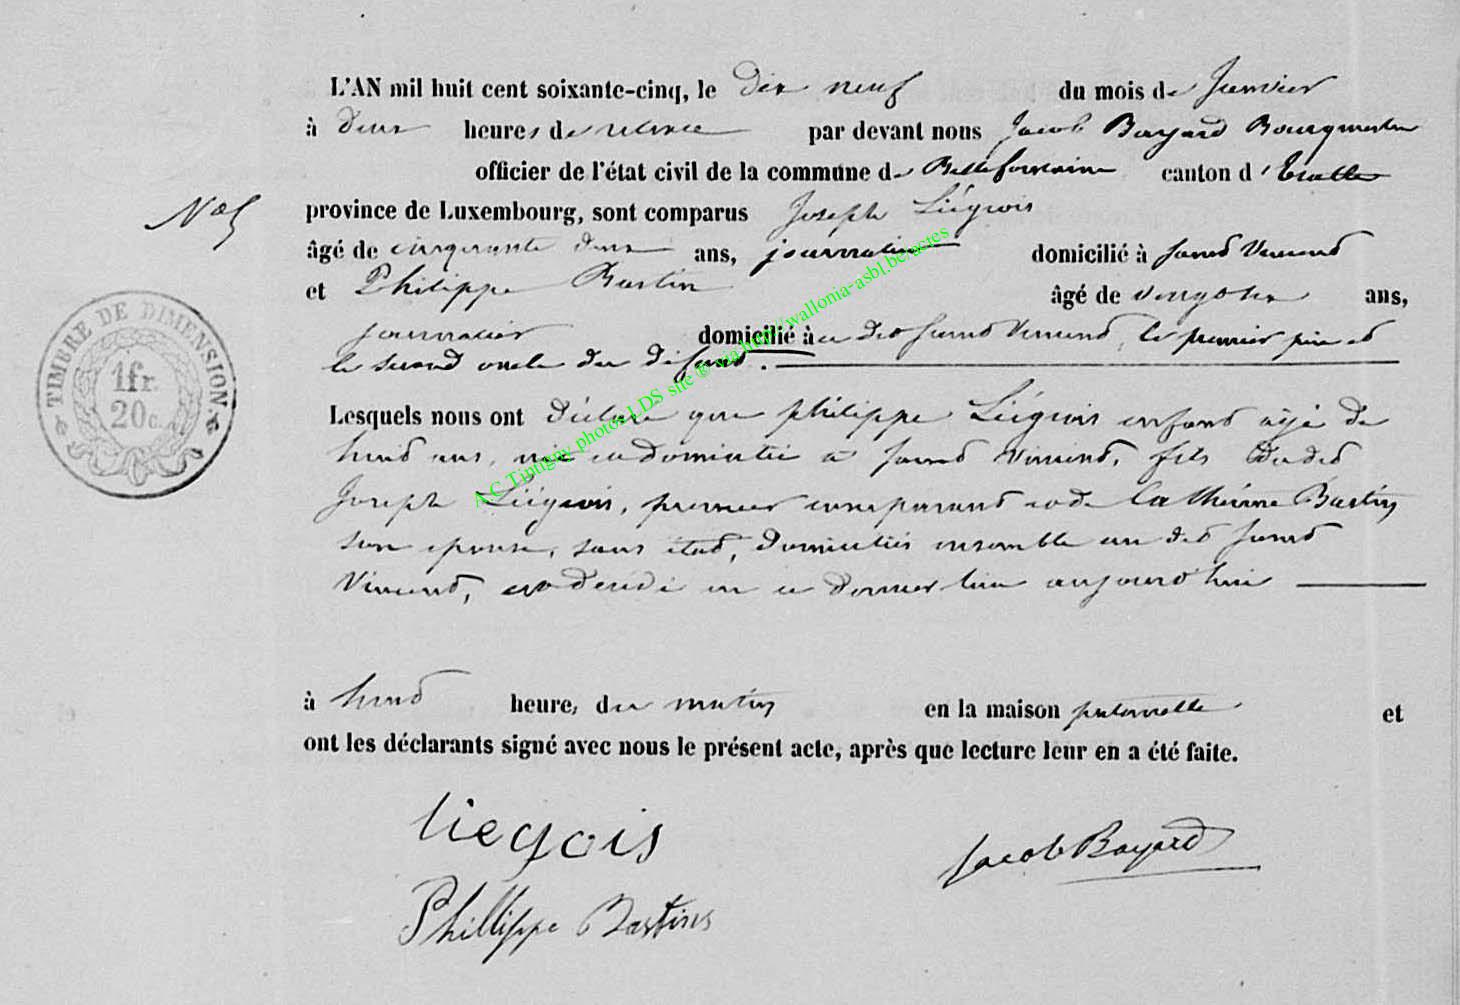 L'AN mil huit cent soixante-cinq, le dix neuf du mois de Janvier
à deux heures de relevée par devant nous Jacob Bayard Bourgmestre
officier de l'état civil de la commune de Bellefontaine canton d'Etalle
N° 5
province de Luxembourg, sont comparus Joseph Liégeois
âgé de cinquante deux ans, journalier domicilié à Saint Vincent
et Philippe Bastin âgé de ans,
journalier domicilié à au dit Saint Vincent, le premier père et
le second oncle du défunt.
Lesquels nous ont déclaré que Philippe Liégeois enfant âgé de
huit ans, né et domicilié à Saint Vincent, fils dudit
Joseph Liégeois, premier comparant et de Cathérine Bastin
son épouse, sans état, domiciliés ensemble au dit Saint
Vincent, est décédé en ce dernier lieu aujourd'hui
à huit heures du matin en la maison paternelle et
ont les déclarants signé avec nous le présent acte, après que lecture leur en a été faite.
Liegois
Jacob Bayard
Phillippe Bastin
TIMBRE DE DIMENSION.
1 fr.
20 c.
A.C Tintigny photos LDS site © via http://wallonia-asbl.be/actes